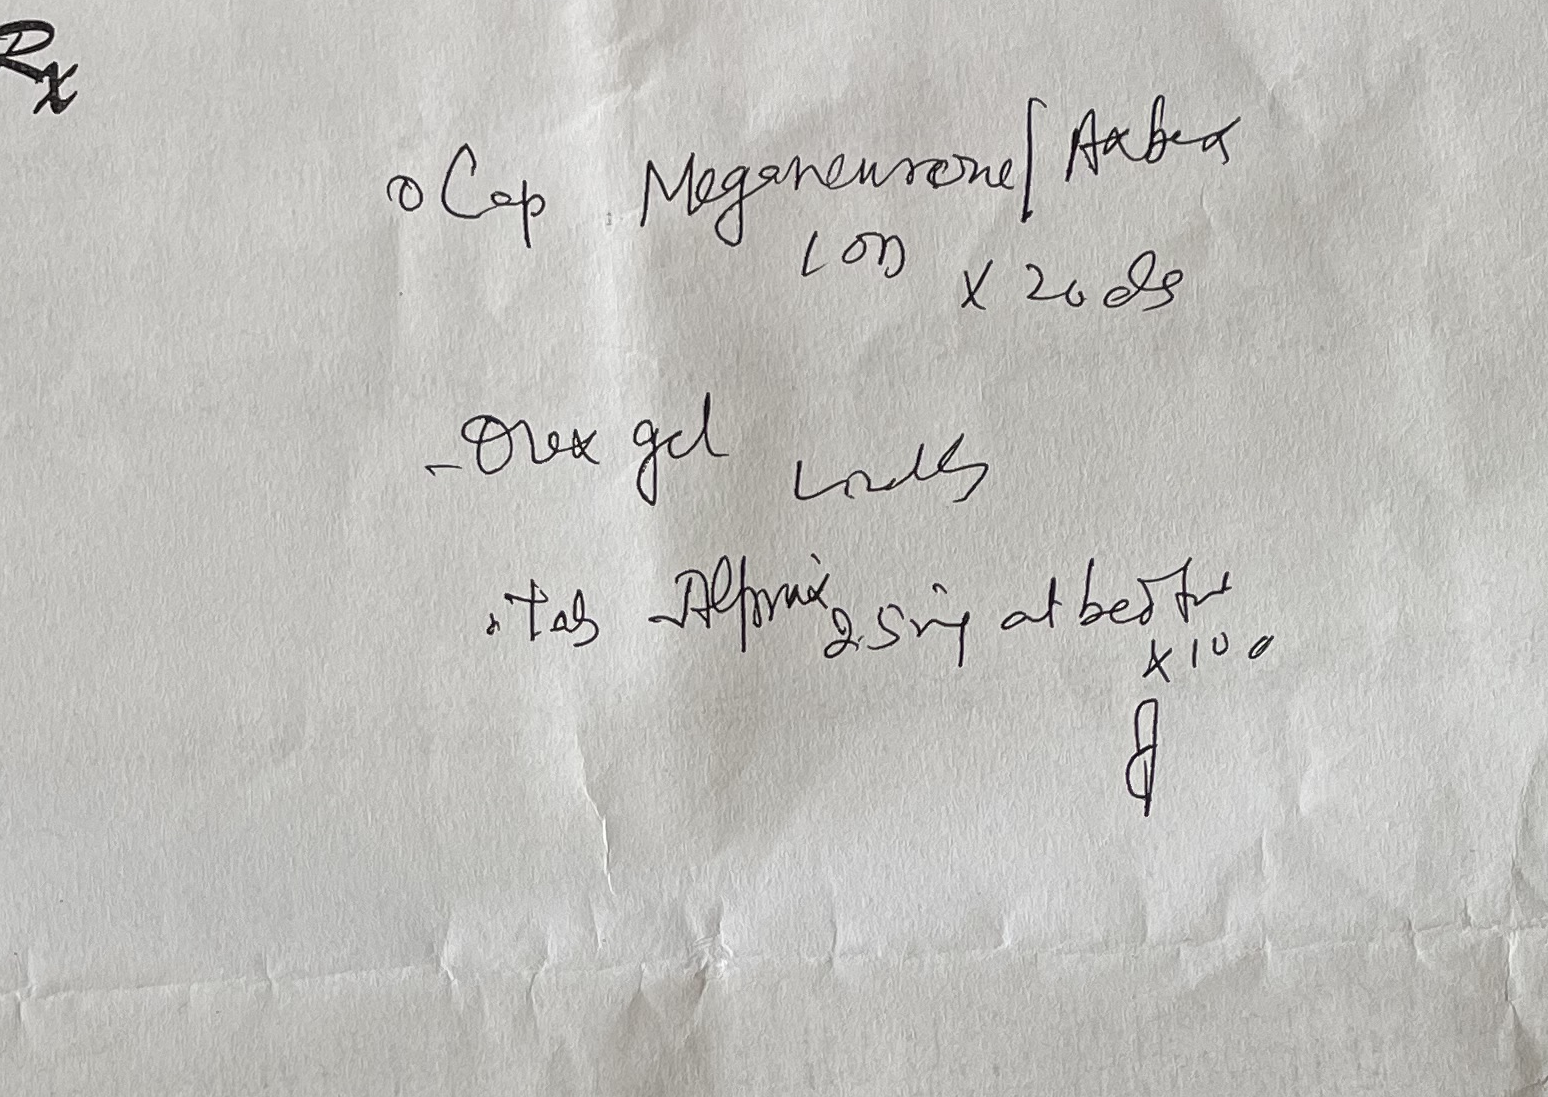 Rx
Cap Meganeurone/Axbex
1 OD x 20 ds
Orex gel
Tab Alprax 2.5mg at bed time
x 10 d